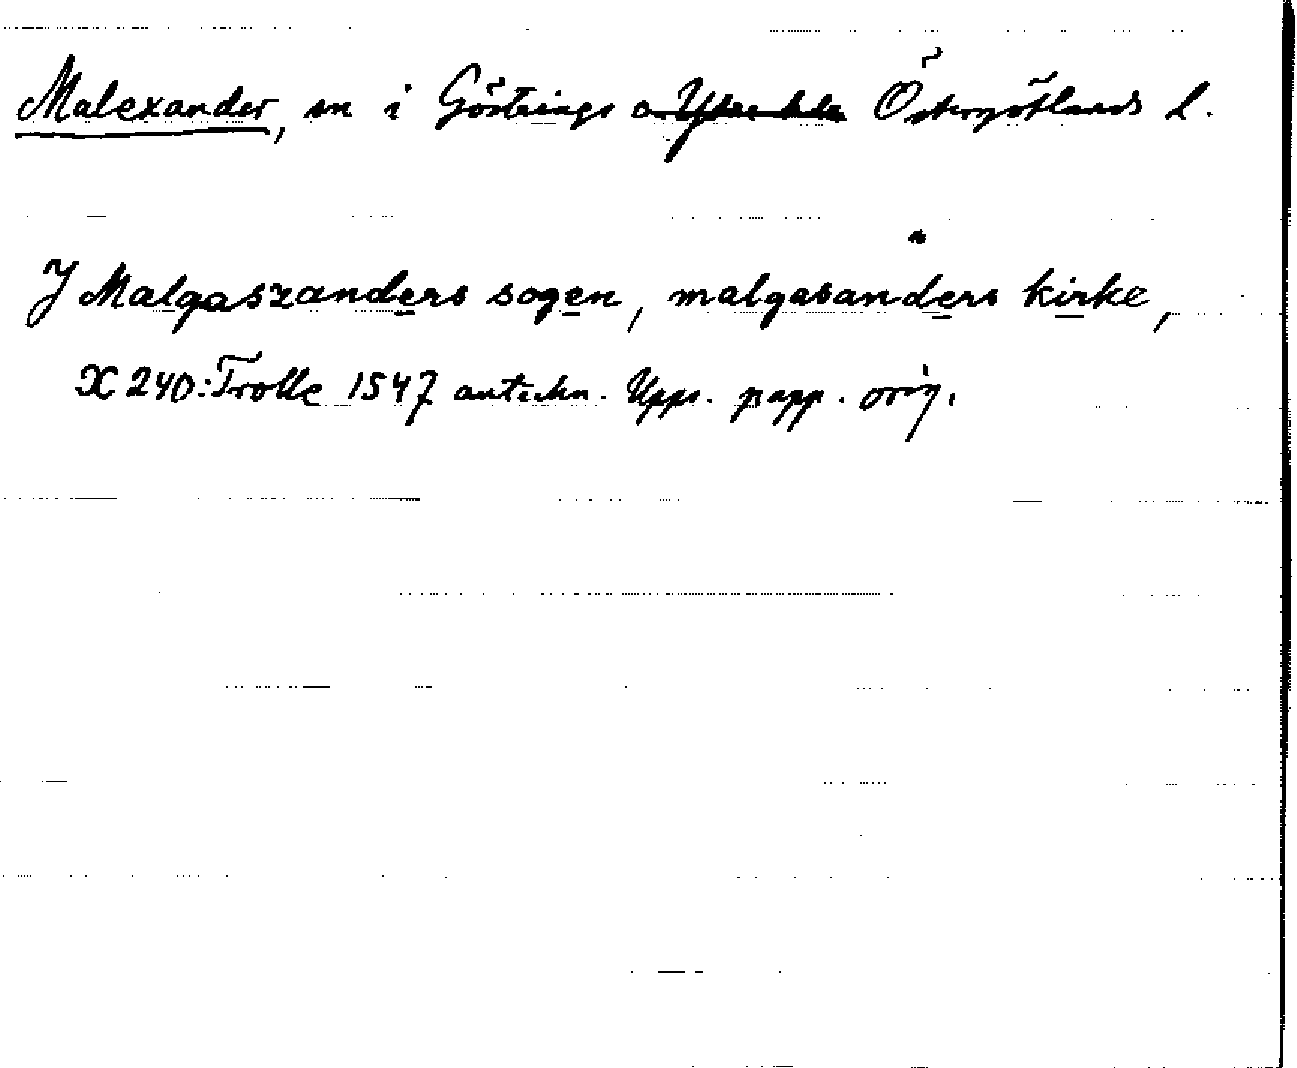 Malexander, sn i Göstrings o Ydre hdr Östergötlands l.
J Malgaszanders sogen, malgasanders kirke,
X 240: Trolle 1547 anteckn. Upps. papp. orig.